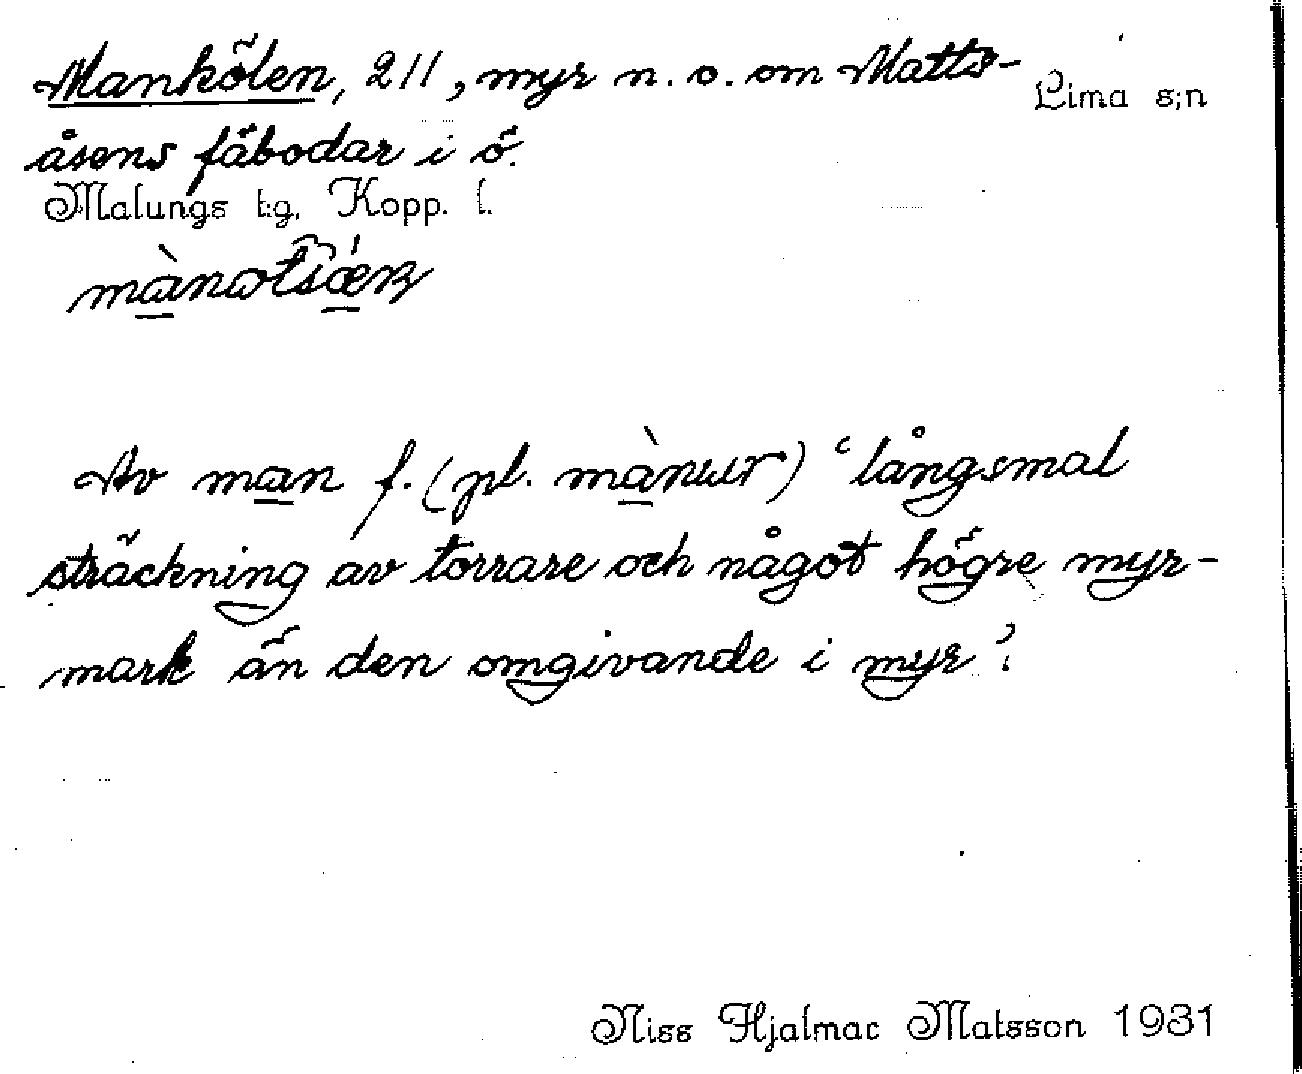 Mankölen, 211, myr n. o. om Matts-
Lima s:n
åsens fäbodar i ö.
Malungs t:g. Kopp. l.
Av man f. (pl. mànur) 'långsmal
sträckning av torrare och något högre myr-
mark än den omgivande i myr'.
Niss Hjalmar Matsson 1931